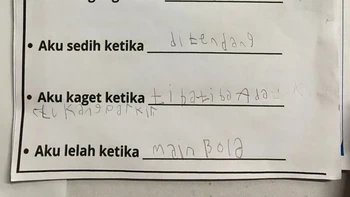 • Aku sedih ketika ditendang
• Aku kaget ketika tibatiba Ada
tukangparkir
• Aku lelah ketika main Bola